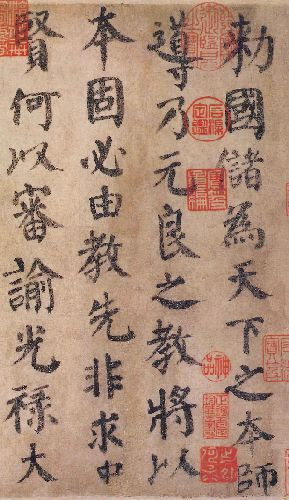 勅國儲為天下之本師
導乃元良之教將以
本固必由教先非求忠
賢何以審諭光祿大
神品